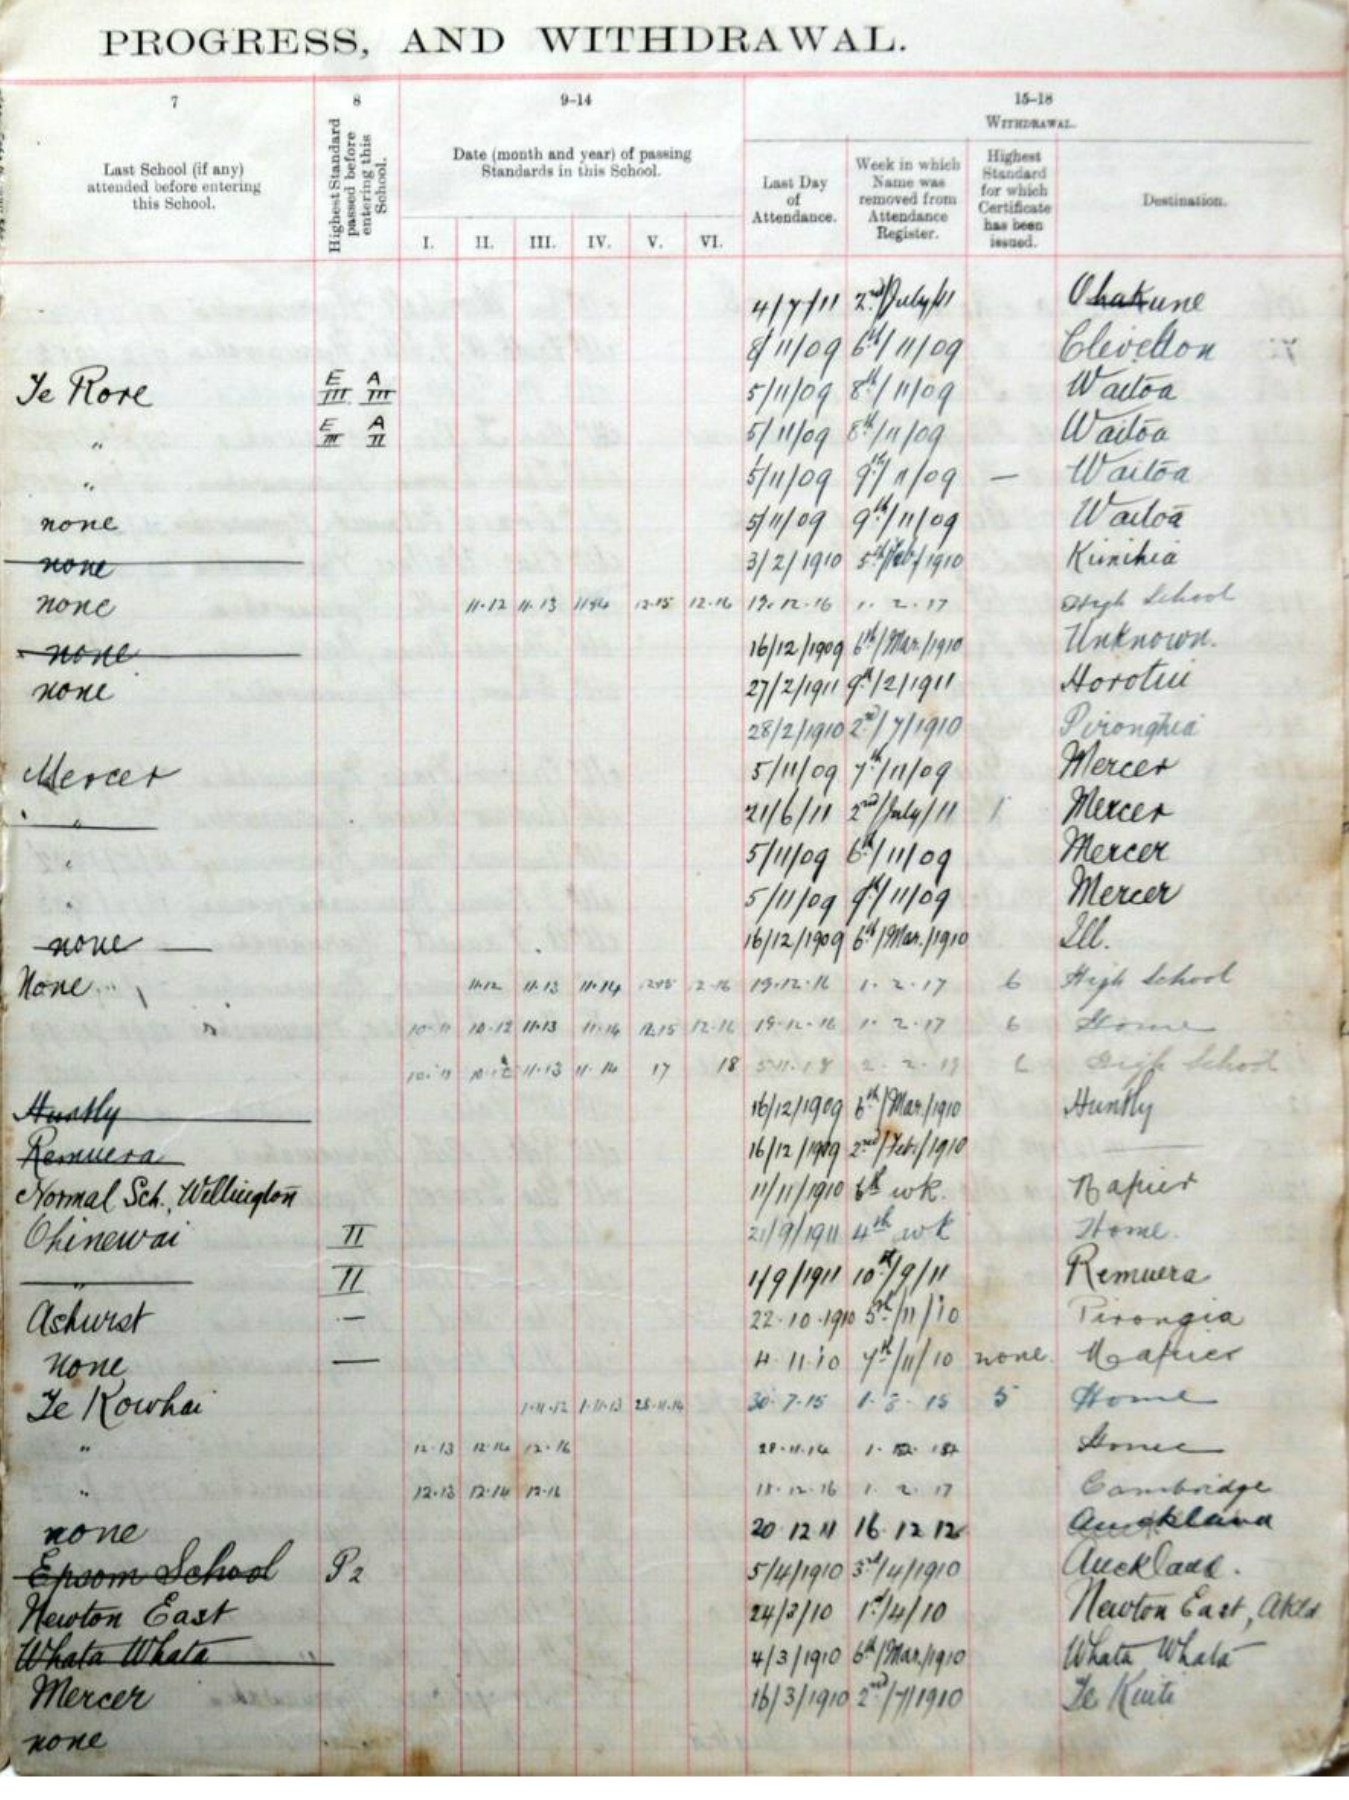 PROGRESS, AND WITHDRAWAL.
7 8 9–14 15–18
WITHDRAWAL.
Last School (if any) attended before entering this School.
Highest Standard passed before entering this School.
Date (month and year) of passing Standards in this School.
I. II. III. IV. V. VI.
Last Day of Attendance.
Week in which Name was removed from Attendance Register.
Highest Standard for which Certificate has been issued.
Destination.
4/7/11 2nd/July/11 Ohakune
8/11/09 6th/11/09 Clevelton
Te Rore E III A III 5/11/09 8th/11/09 Waitoa
" E III A II 5/11/09 8th/11/09 Waitoa
" 5/11/09 9th/11/09 — Waitoa
none 5/11/09 9th/11/09 Waitoa
none 3/2/1910 5th/Feb/1910 Kimihia
none 11-12 11-13 11-14 12-15 12-16 19-12-16 1-2-17 High School
none 16/12/1909 6th/Mar./1910 Unknown.
none 27/2/1911 9th/2/1911 Horotiu
28/2/1910 2nd/7/1910 Pironghia
Mercer 5/11/09 7th/11/09 Mercer
" 21/6/11 2nd/July/11 1 Mercer
" 5/11/09 6th/11/09 Mercer
" 5/11/09 9th/11/09 Mercer
none — 16/12/1909 6th/Mar./1910 Ill.
None 11-12 11-13 11-14 12-15 12-16 19-12-16 1-2-17 6 High School
" 10-11 10-12 11-13 11-14 12-15 12-16 19-12-16 1-2-17 6 Home
10-11 10-12 11-13 11-14 17 18 2-2-19 6 High School
Huntly 16/12/1909 6th/Mar./1910 Huntly
Remuera 16/12/1909 2nd/Feb./1910 —
Normal Sch., Wellington 11/11/1910 6th wk. Napier
Ohinewai II 21/9/1911 4th wk Home.
" II 1/9/1911 10th/9/11 Remuera
Ashurst — 22-10-1910 5th/11/10 Pirongia
none — 4-11-10 7th/11/10 none. Napier
Te Kowhai 1-11-12 1-11-13 28-11-14 30-7-15 1-8-15 5 Home
" 12-13 12-14 12-16 28-11-14 Home
" 12-13 12-14 12-16 18-12-16 1-2-17 Cambridge
none 20 12 11 16 12 12 Auckland
Epsom School P2 5/4/1910 3rd/4/1910 Auckland.
Newton East 24/3/10 1st/4/10 Newton East, Akld
Whata Whata 4/3/1910 6th/Mar./1910 Whata Whata
Mercer 16/3/1910 2nd/7/1910 Te Kuiti
none